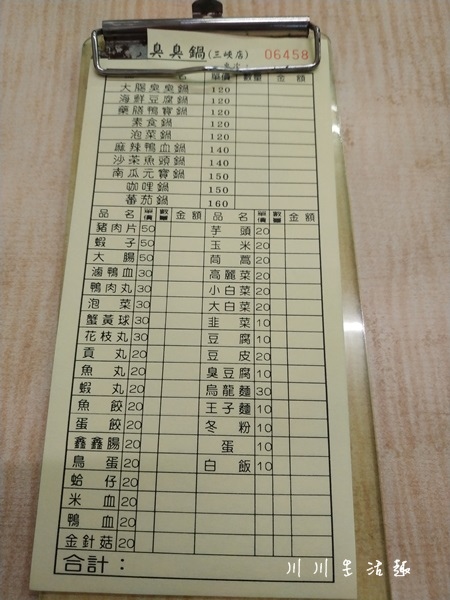 臭臭鍋(三峽店) 06458
名 單價 數量 金額
大腸臭臭鍋 120
海鮮豆腐鍋 120
藥膳鴨寶鍋 120
素食鍋 120
泡菜鍋 120
麻辣鴨血鍋 140
沙茶魚頭鍋 140
南瓜元寶鍋 150
咖哩鍋 150
蕃茄鍋 160
品名 單價 數量 金額 品名 單價 數量 金額
豬肉片 50 芋頭 20
蝦子 50 玉米 20
大腸 50 茼蒿 20
滷鴨血 30 高麗菜 20
鴨肉丸 30 小白菜 20
泡菜 30 大白菜 20
蟹黃球 30 韭菜 10
花枝丸 30 豆腐 10
貢丸 20 豆皮 20
魚丸 20 臭豆腐 10
蝦丸 20 烏龍麵 30
魚餃 20 王子麵 10
蛋餃 20 冬粉 10
鑫鑫腸 20 蛋 10
鳥蛋 20 白飯 10
蛤仔 20
米血 20
鴨血 20
金針菇 20
合計：
川川生活趣